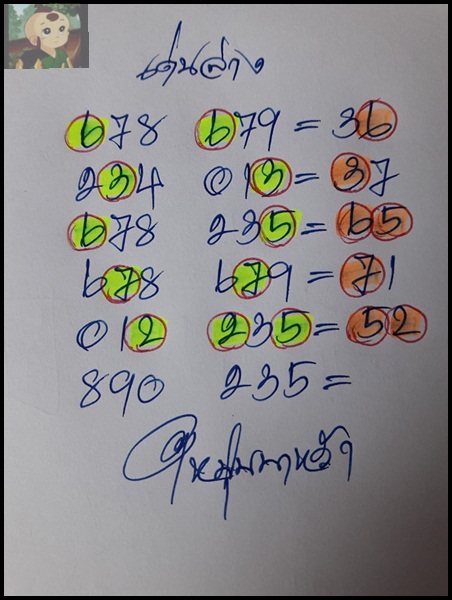 เด่นล่าง
678 679 = 36
234 013 = 37
678 235 = 65
678 679 = 71
012 235 = 52
890 235 =